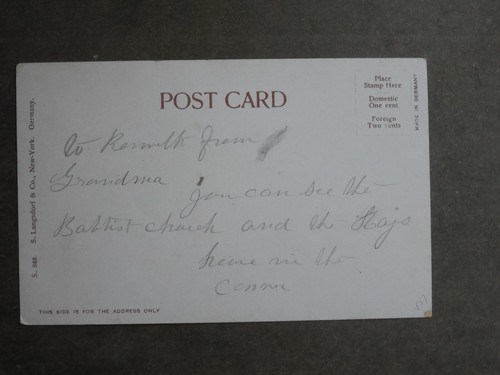 POST CARD
Place
Stamp Here
Domestic
One cent
Foreign
Two cents
MADE IN GERMANY
S. 842 S. Langsdorf & Co., New-York. Germany.
to Kenneth from
Grandma you can see the
Baptist church and the
house in the
corner
THIS SIDE IS FOR THE ADDRESS ONLY